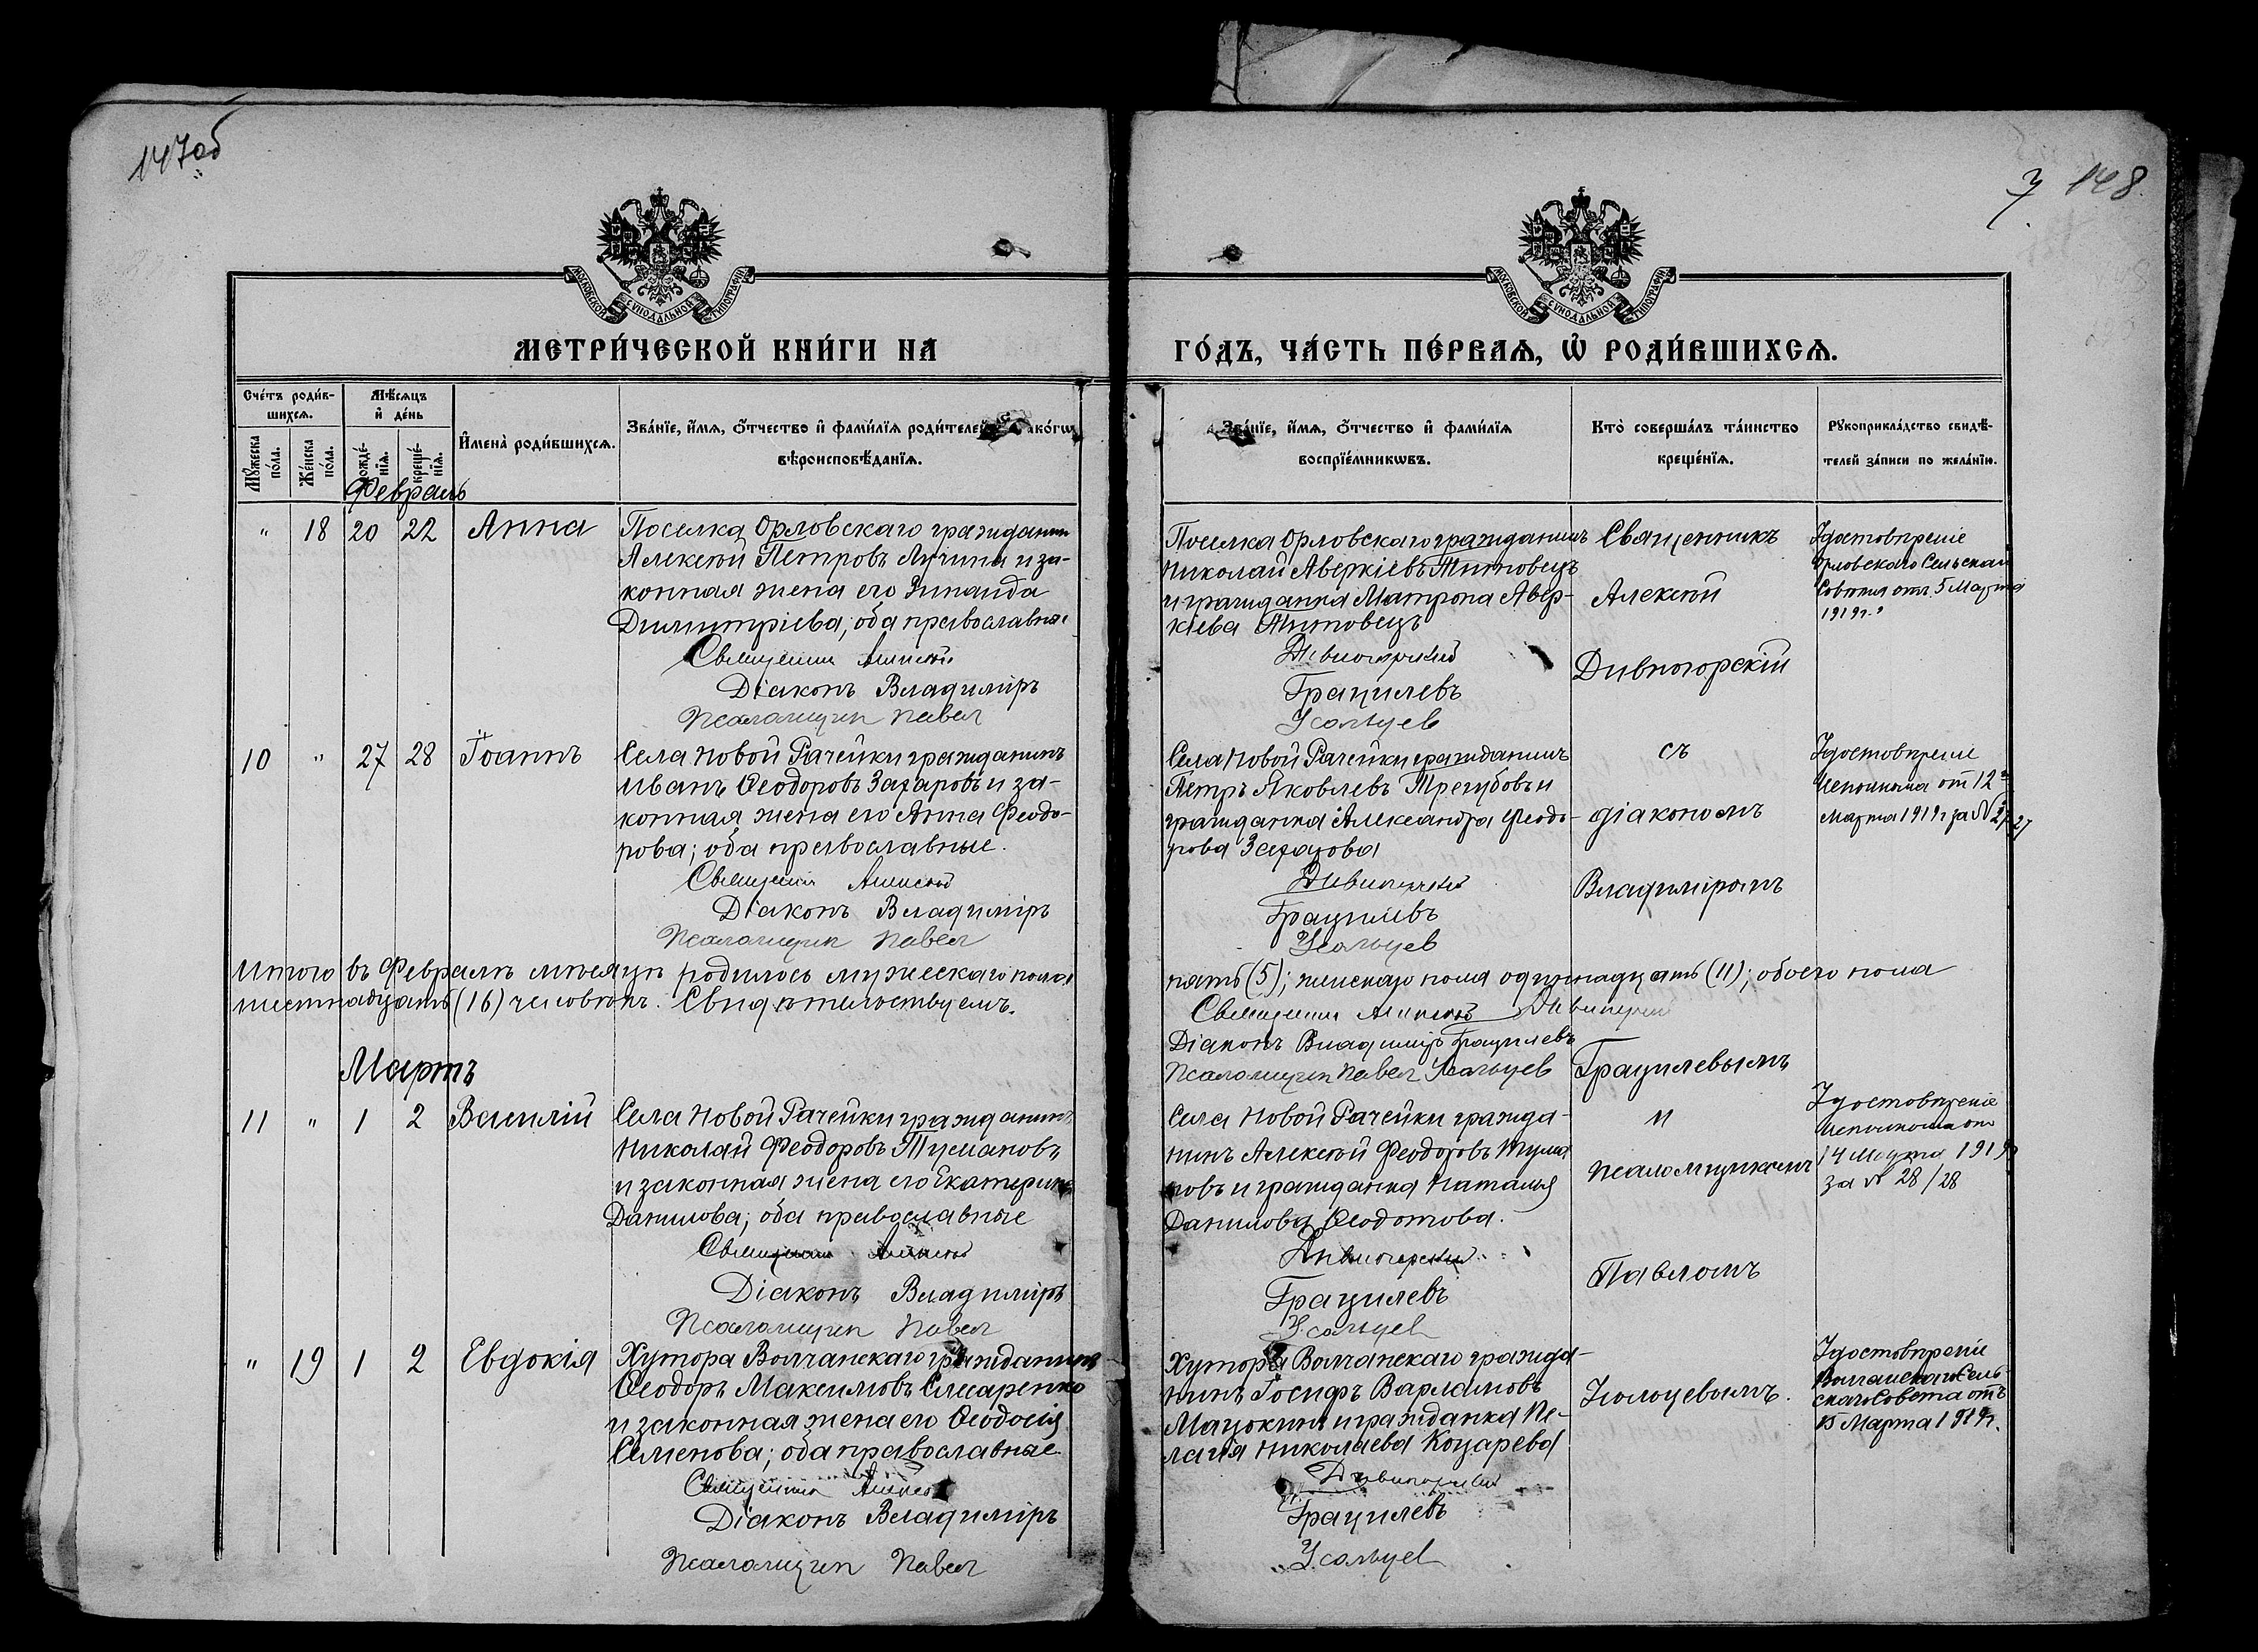 147об
3 148.
МОСКОВСКОЙ СѴНОДАЛЬНОЙ ТИПОГРАФІИ
МОСКОВСКОЙ СѴНОДАЛЬНОЙ ТИПОГРАФІИ
МЕТРИ́ЧЕСКОЙ КНИ́ГИ НА
ГО́ДЪ, ЧА́СТЬ ПЕ́РВАѦ, Ѽ РОДИ́ВШИХСѦ.
Сче́тъ роди́в-
шихсѧ.
Мꙋжеска по́ла.
Же́нска по́ла.
Мѣ́сѧцъ
и҆ де́нь
рожде́-
нїѧ.
креще́-
нїѧ.
И҆мена̀ роди́вшихсѧ.
Зва́нїе, и҆́мѧ, ѻ҆́тчество и҆ фами́лїѧ роди́телей како́гѡ
вѣроисповѣ́данїѧ.
Зва́нїе, и҆́мѧ, ѻ҆́тчество и҆ фами́лїѧ
воспрїе́мникѡвъ.
Кто̀ соверша́лъ та́инство
креще́нїѧ.
Рꙋкоприкла́дство свидѣ́-
телей за́писи по жела́нїю.
Февраль
" 18 20 22 Анна
Поселка Орловскаго гражданин
Алексѣй Петровъ Лучина и за-
конная жена его Зинаида
Димитріева; оба православные
Священник Алексѣй
Діаконъ Владиміръ
Псаломщик Павел
Поселка Орловскаго гражданинъ
Николай Аверкіевъ Литовецъ
и гражданка Матрона Авер-
кіева Литовецъ
Дивногорскій
Грацилевъ
Усольцев
Священникъ
Алексѣй
Дивногорскій
Удостовѣреніе
Орловскаго Сельскаго
Совѣта отъ 5 Марта
1919 г.
10 " 27 28 Іоаннъ
Села Новой Рачейки гражданинъ
Иванъ Ѳеодоровъ Захаровъ и за-
конная жена его Анна Феодо-
рова; оба православные.
Священник Алексѣй
Діаконъ Владиміръ
Псаломщик Павел
Села Новой Рачейки гражданинъ
Петръ Яковлевъ Трегубовъ и
гражданка Александра Феодо-
рова Захарова
Дивногорскій
Грацилевъ
Усольцев
съ
діакономъ
Владиміромъ
Удостовѣреніе
Исполкома от 12го
Марта 1919 г за № 27/27
Итого въ Февралѣ мѣсяцѣ родилось мужескаго пола
пять (5); женскаго пола одиннадцать (11); обоего пола
шестнадцать (16) человѣкъ. Свидѣтельствуемъ.
Священник Алексѣй Дивногорскій
Діаконъ Владиміръ Грацилевъ
Псаломщик Павел Усольцев
Грацилевымъ
Мартъ
11 " 1 2 Василій
Села Новой Рачейки гражданинъ
Николай Феодоровъ Тумановъ
и законная жена его Екатерина
Данилова; оба православные
Священник Алексѣй
Діаконъ Владиміръ
Псаломщик Павел
Села Новой Рачейки гражда-
нинъ Алексѣй Феодоровъ Тума
новъ и гражданка Наталья
Данилова Ѳеодотова.
Дивногорскій
Грацилевъ
Усольцев
и
псаломщикомъ
Павломъ
Удостовѣреніе
Исполкома от
14 Марта 1919
за № 28/28
" 19 1 2 Евдокія
Хутора Волчанскаго гражданинъ
Ѳеодоръ Максимовъ Слюсаренко
и законная жена его Ѳеодосія
Семенова; оба православные
Священник Алексѣй
Діаконъ Владиміръ
Псаломщик Павел
Хутора Волчанскаго гражда-
нинъ Іосифъ Варламовъ
Мацокинъ и гражданка Пе-
лагія Николаева Коцарева
Дивногорскій
Грацилевъ
Усольцев
Усольцевымъ.
Удостовѣреніе
Волчанскаго Сель-
скаго Совета отъ
15 Марта 1919 г.